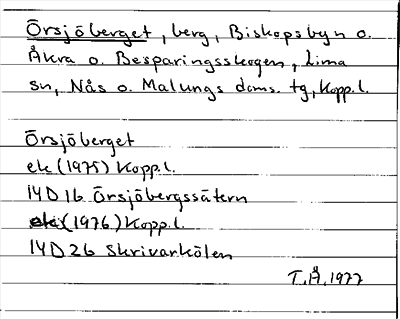 Örsjöberget, berg, Biskopsbyn o.
Åkra o. Besparingsskogen, Lima
sn, Nås o. Malungs doms. tg, Kopp.l.
Örsjöberget
ek (1975) Kopp.l.
14D 1b Örsjöbergssätern
ek (1976) Kopp.l.
14D 2b Skrivarkölen
T.Å. 1977